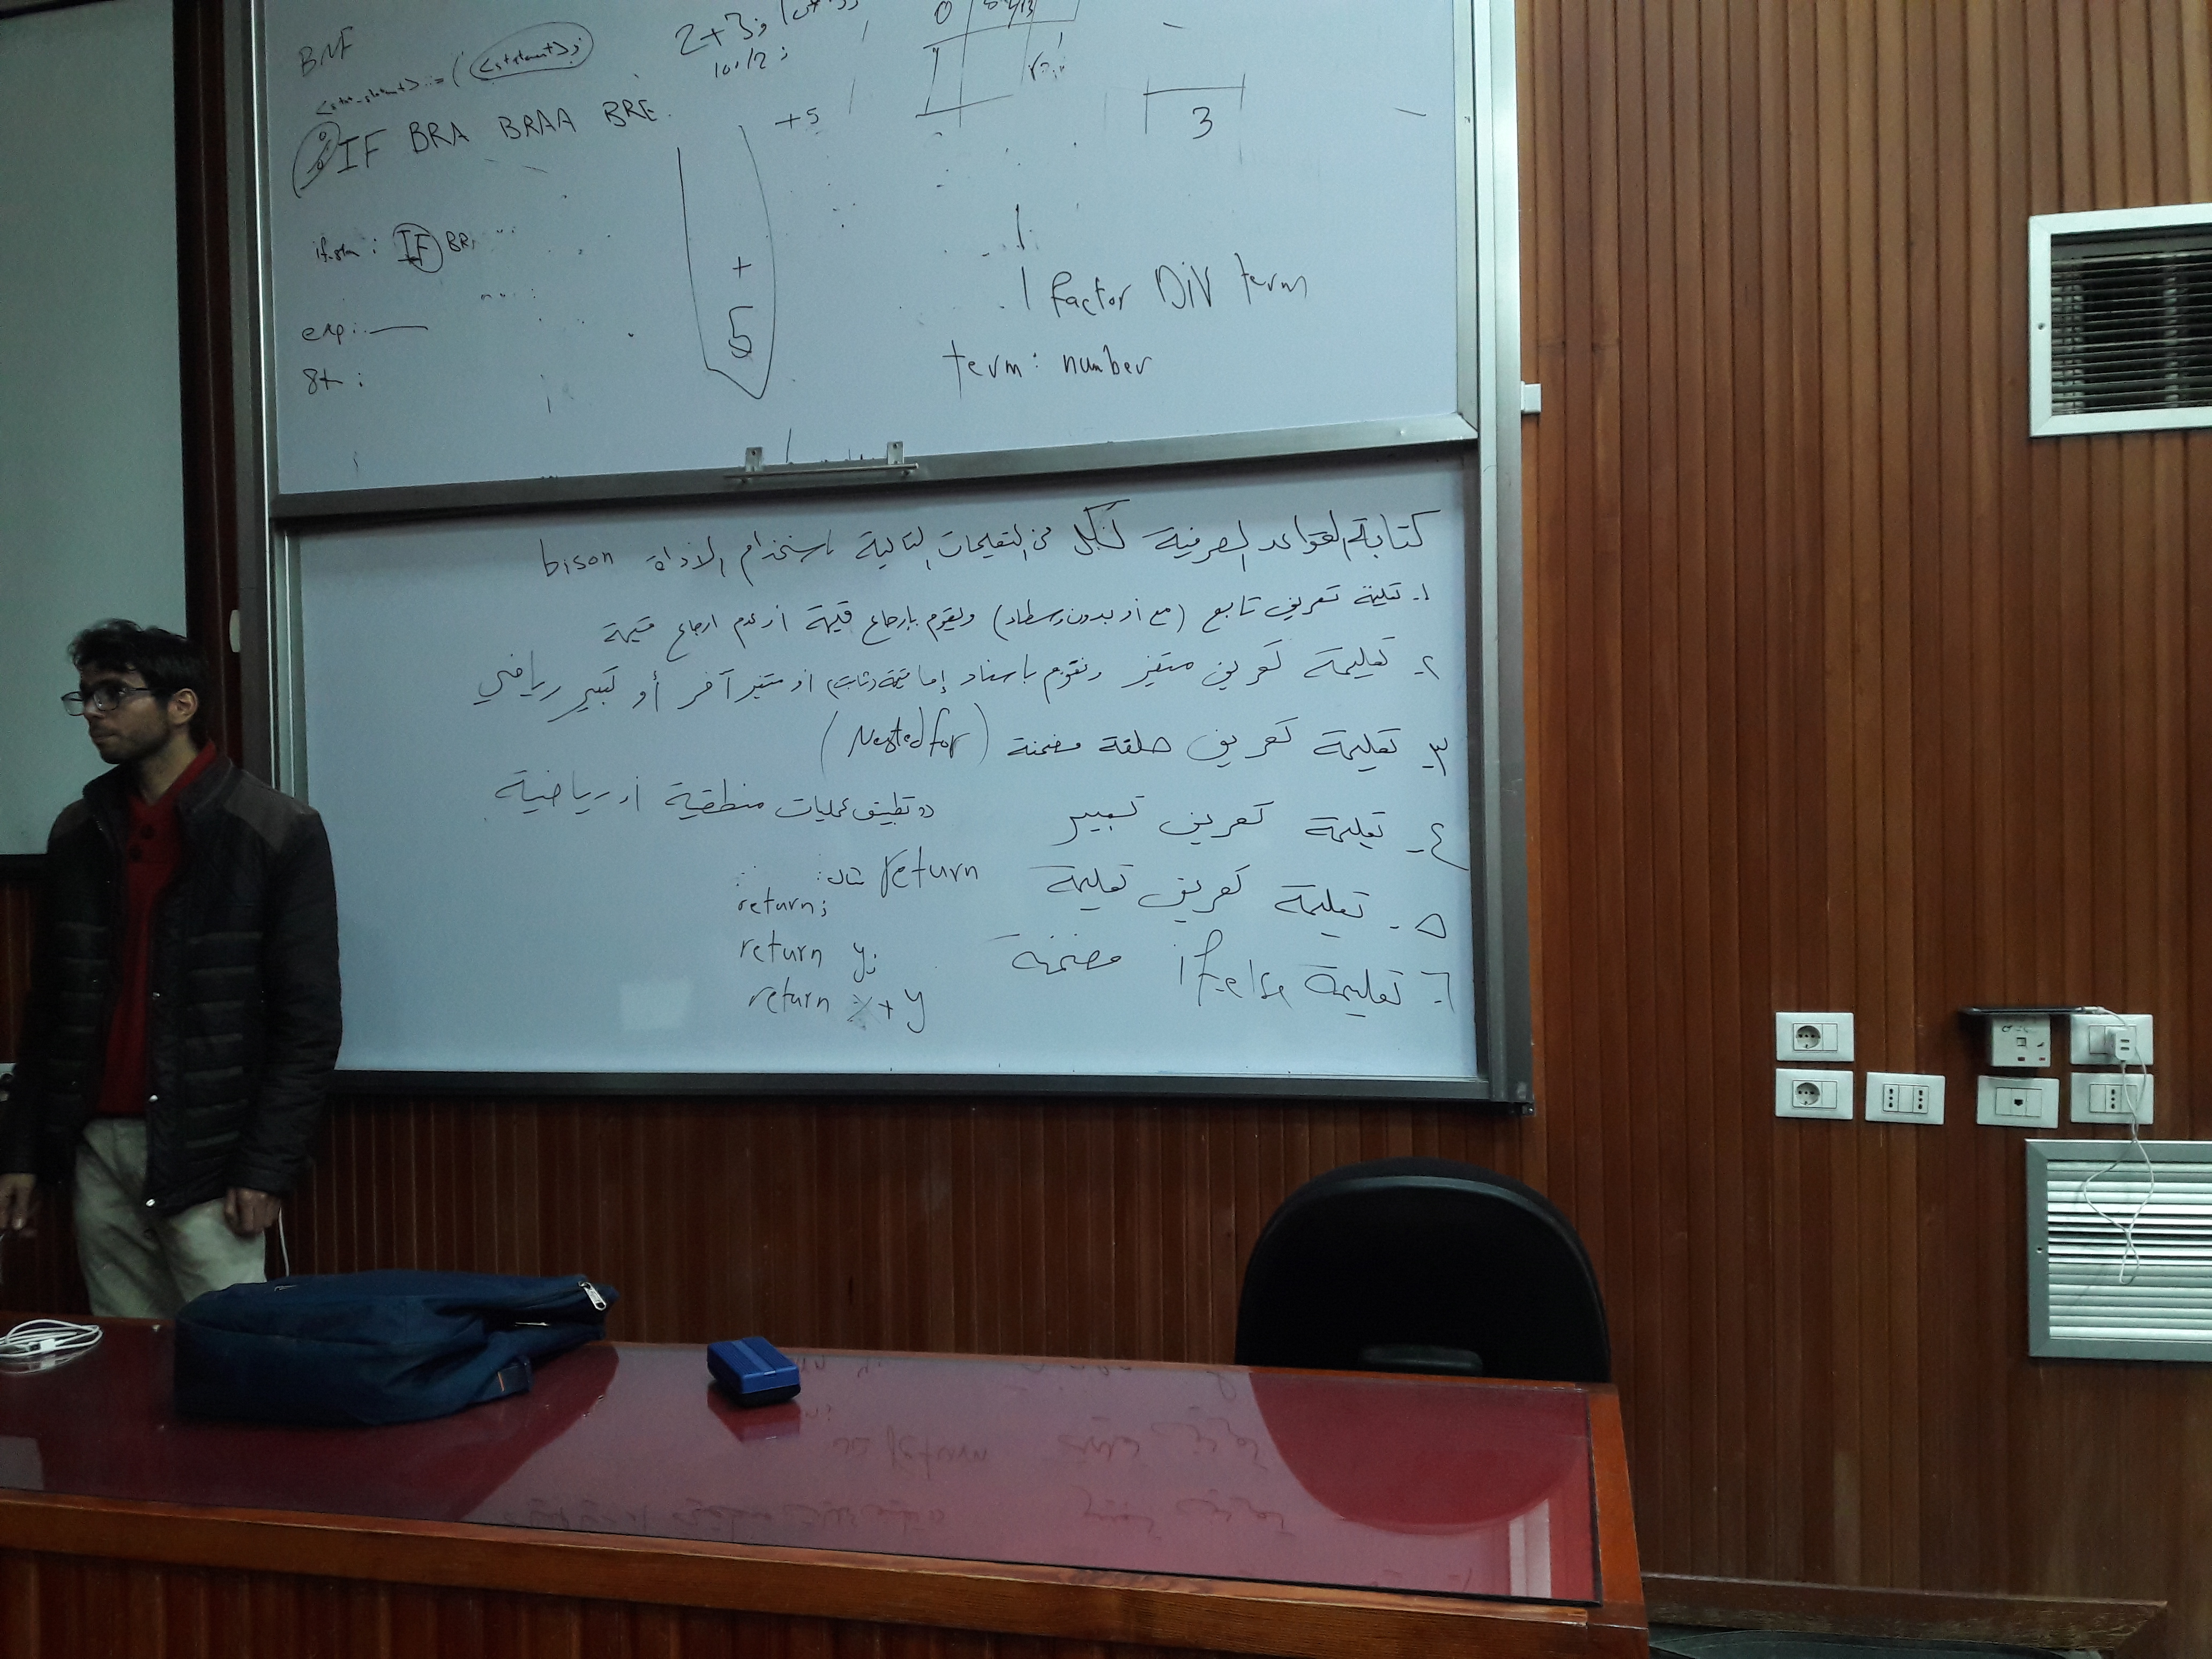 BNF
2+3;
10/2;
::= (<statement>;
IF BRA BRAA BRE
+5
3
IF BR
+
5
| factor DIV term
exp:
term: number
st:
كتابة القواعد الصرفية لكل من التعليمات التالية باستخدام الاداة bison
١- تعليمة تعريف تابع (مع أو بدون وسطاء) ويقوم بإرجاع قيمة أو عدم ارجاع قيمة
٢- تعليمة تعريف متغير ونقوم باسناد إما قيمة (ثابت) أو متغير آخر أو تعبير رياضي
٣- تعليمة تعريف حلقة مضمنة (Nested for)
٤- تعليمة تعريف تعبير تطبيق عمليات منطقية أو رياضية
٥- تعليمة تعريف تعليمة return مثال:
return;
return y;
return x+y
٦- تعليمة if-else مضمنة